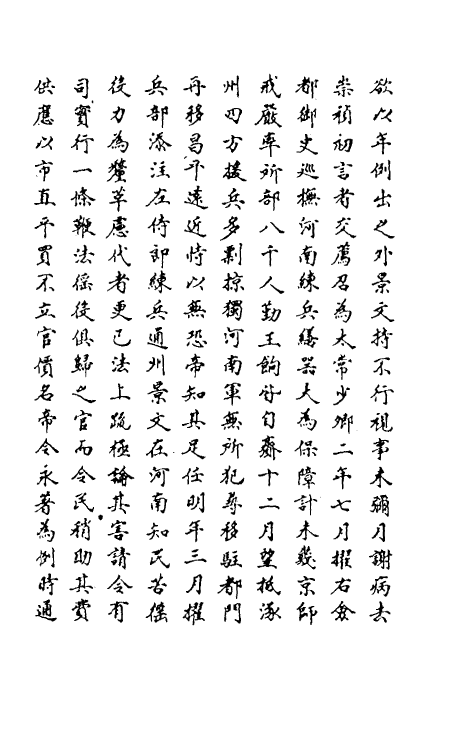 欲以年例出之外景文持不行視事未彌月謝病去
崇禎初言者交薦召為太常少卿二年七月擢右僉
都御史巡撫河南練兵繕器大為保障計未幾京師
戒嚴率所部八千人勤王餉皆自齎十二月望抵涿
州四方援兵多剽掠獨河南軍無所犯尋移駐都門
再移昌平遠近恃以無恐帝知其足任明年三月擢
兵部添注左侍郎練兵通州景文在河南知民苦徭
役力為釐革慮代者更已法上疏極論其害請令有
司實行一條鞭法徭役俱歸之官而令民稍助其費
供應以市直平買不立官價名帝令永著為例時通